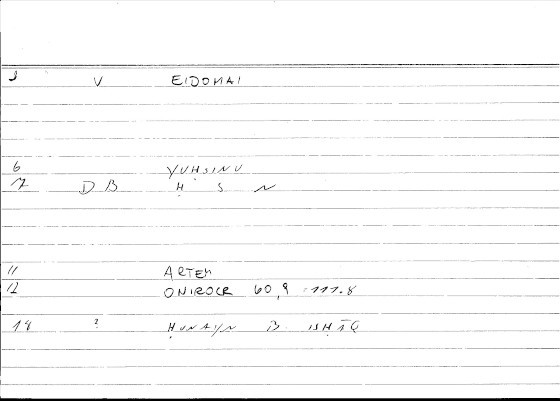 1 V EIDOMAI
6 YUḤSINU
7 DB Ḥ S N
11 ARTEM
12 ONIROCR 60,9 : 111.8
18 ? ḤUNAYN B ISḤĀQ